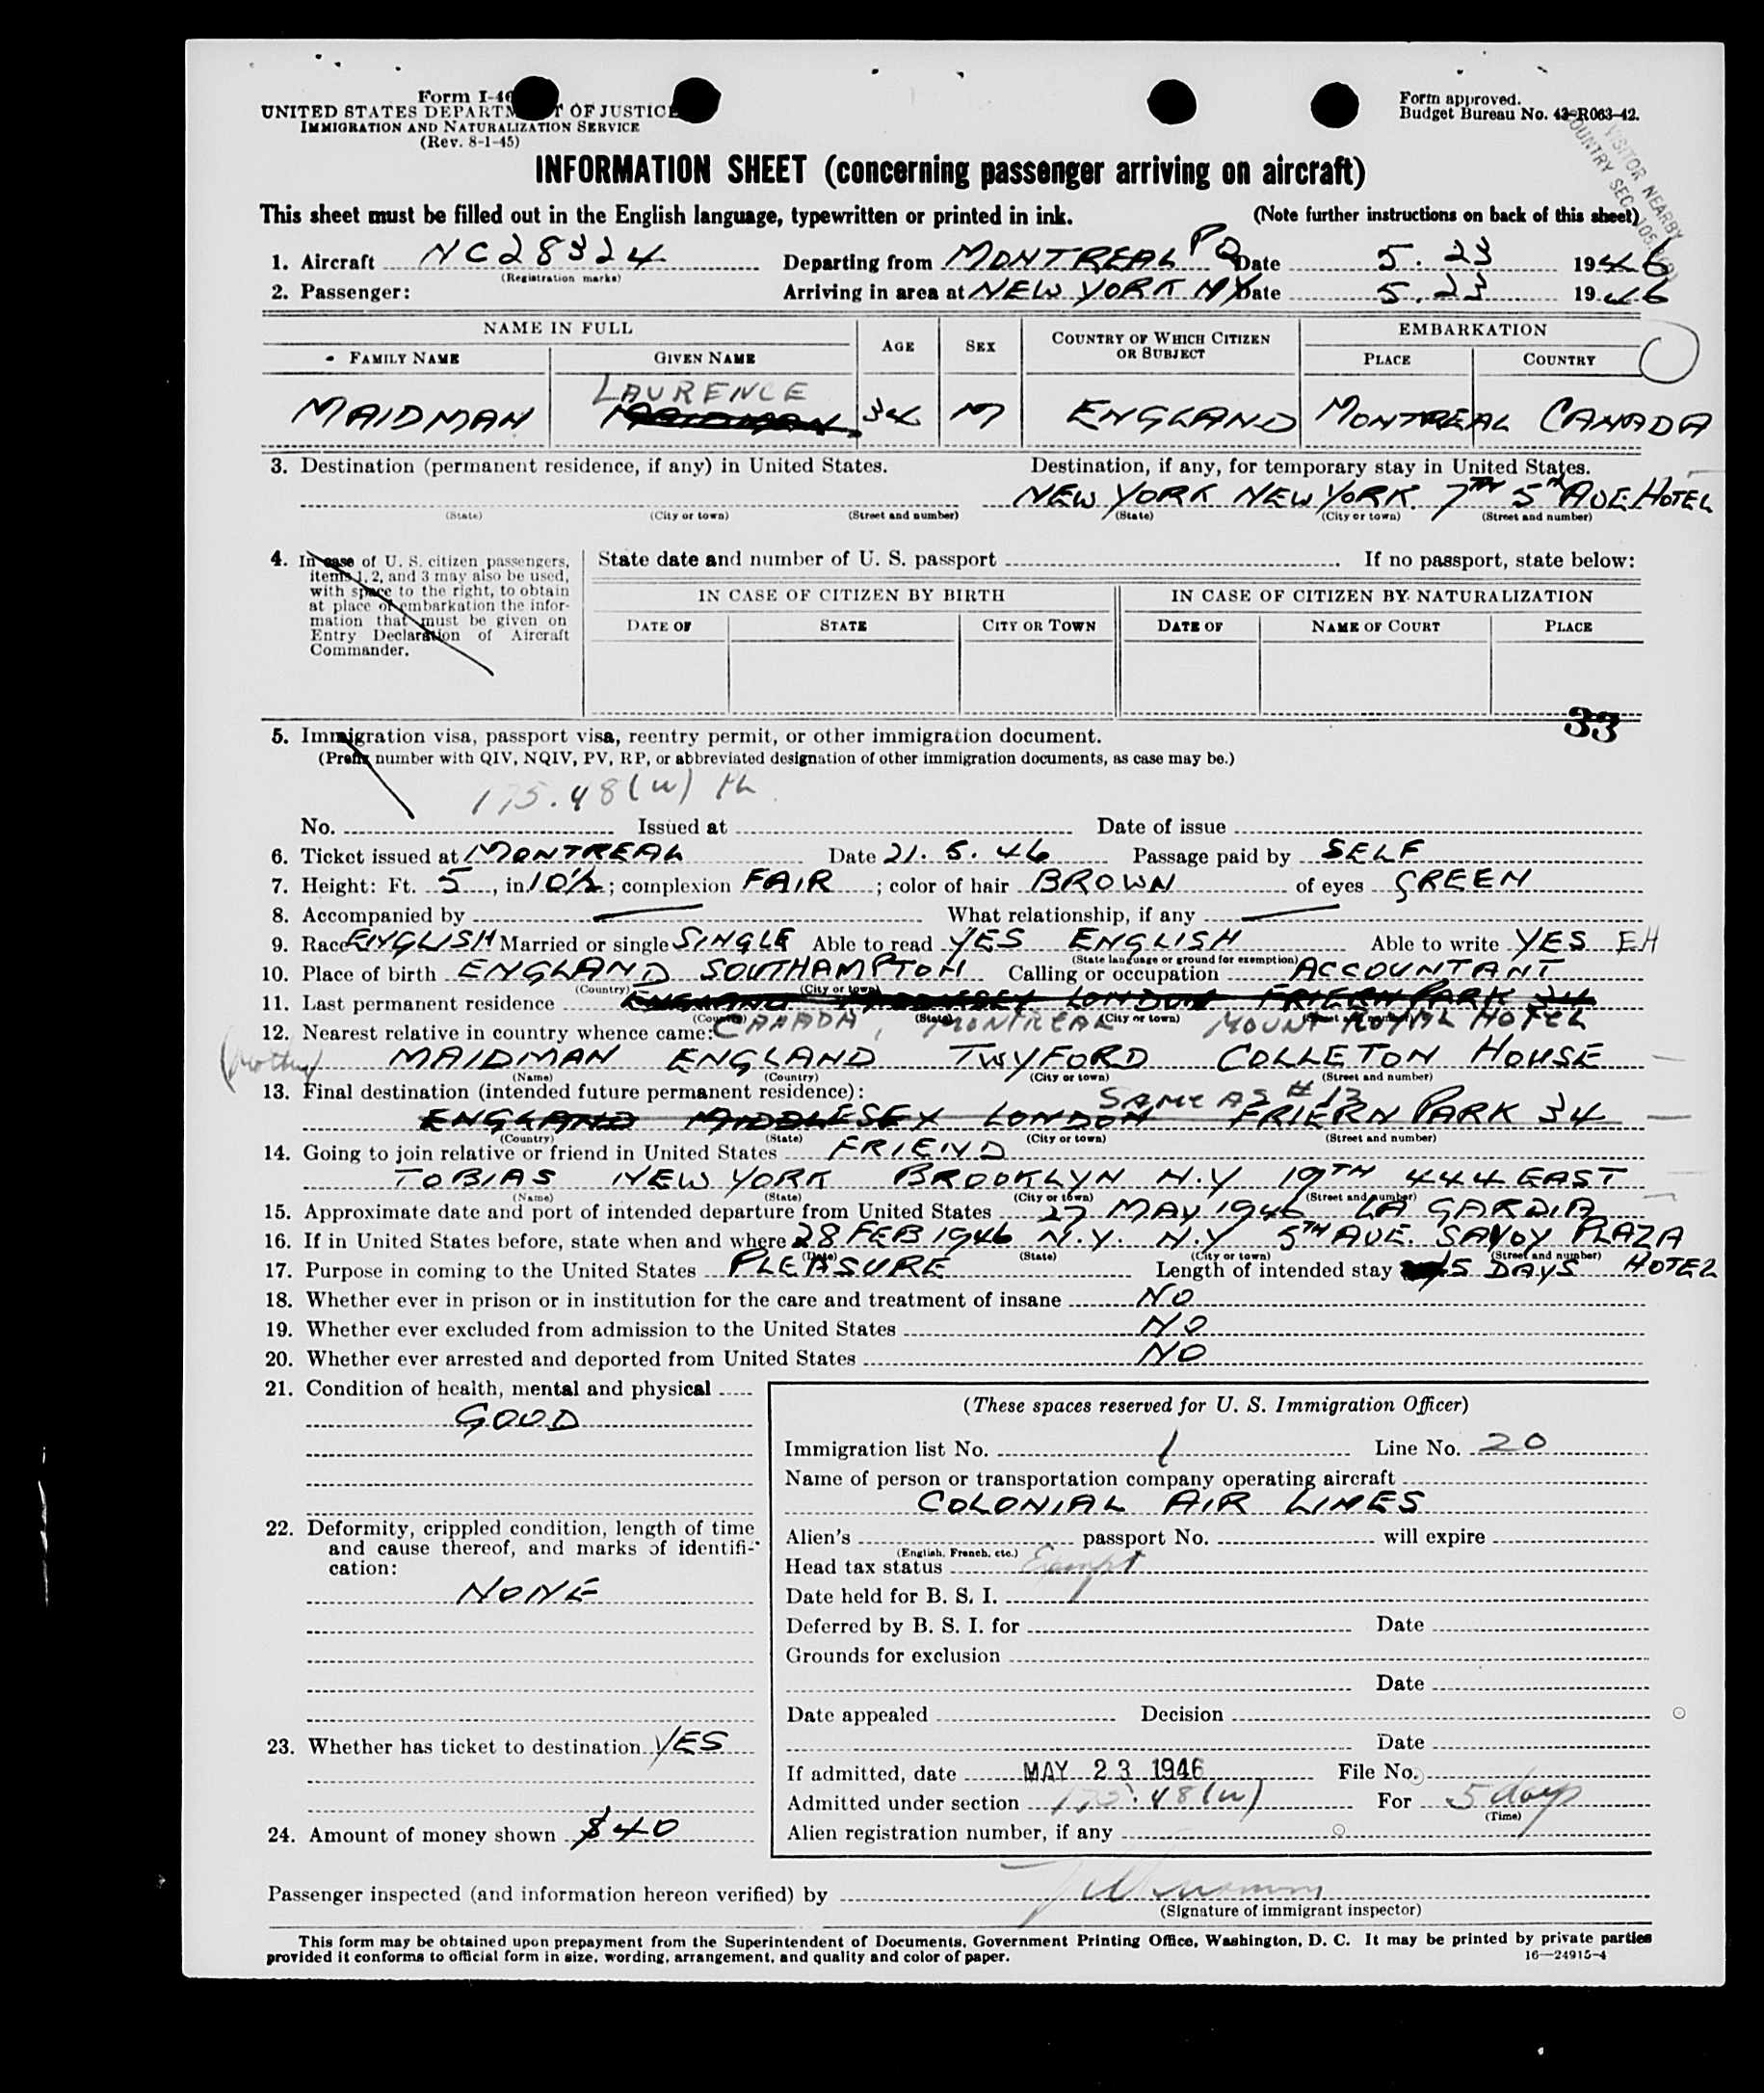 Form I-46
UNITED STATES DEPARTMENT OF JUSTICE
IMMIGRATION AND NATURALIZATION SERVICE
(Rev. 8-1-45)
Form approved.
Budget Bureau No. 43-R063-42.
VISITOR NEARBY
COUNTRY SEC.
INFORMATION SHEET (concerning passenger arriving on aircraft)
This sheet must be filled out in the English language, typewritten or printed in ink. (Note further instructions on back of this sheet)
1. Aircraft NC28324 Departing from MONTREAL PQ Date 5.23 1946
(Registration marks)
2. Passenger: Arriving in area at NEW YORK NY Date 5.23 1946
NAME IN FULL AGE SEX COUNTRY OF WHICH CITIZEN OR SUBJECT EMBARKATION
FAMILY NAME GIVEN NAME PLACE COUNTRY
LAURENCE
MAIDMAN MAIDMAN 34 M ENGLAND MONTREAL CANADA
3. Destination (permanent residence, if any) in United States. Destination, if any, for temporary stay in United States.
NEW YORK NEW YORK. 7TH 5TH AVE HOTEL
(State) (City or town) (Street and number) (State) (City or town) (Street and number)
4. In case of U. S. citizen passengers,
items 1, 2, and 3 may also be used,
with space to the right, to obtain
at place of embarkation the infor-
mation that must be given on
Entry Declaration of Aircraft
Commander.
State date and number of U. S. passport If no passport, state below:
IN CASE OF CITIZEN BY BIRTH IN CASE OF CITIZEN BY NATURALIZATION
DATE OF STATE CITY OR TOWN DATE OF NAME OF COURT PLACE
33
5. Immigration visa, passport visa, reentry permit, or other immigration document.
(Prefix number with QIV, NQIV, PV, RP, or abbreviated designation of other immigration documents, as case may be.)
175.48(w)
No. Issued at Date of issue
6. Ticket issued at MONTREAL Date 21.5.46 Passage paid by SELF
7. Height: Ft. 5, in 10½; complexion FAIR; color of hair BROWN of eyes GREEN
8. Accompanied by — What relationship, if any —
9. Race ENGLISH Married or single SINGLE Able to read YES ENGLISH Able to write YES EH
(State language or ground for exemption)
10. Place of birth ENGLAND SOUTHAMPTON Calling or occupation ACCOUNTANT
(Country) (City or town)
11. Last permanent residence ENGLAND MIDDLESEX LONDON FRIERN PARK 34
(Country) (State) (City or town) (Street and number)
12. Nearest relative in country whence came: CANADA, MONTREAL MOUNT ROYAL HOTEL
(Mother) MAIDMAN ENGLAND TWYFORD COLLETON HOUSE
(Name) (Country) (City or town) (Street and number)
13. Final destination (intended future permanent residence): SAME AS # 12
ENGLAND MIDDLESEX LONDON FRIERN PARK 34
(Country) (State) (City or town) (Street and number)
14. Going to join relative or friend in United States FRIEND
TOBIAS NEW YORK BROOKLYN N.Y 19TH 444 EAST
(Name) (State) (City or town) (Street and number)
15. Approximate date and port of intended departure from United States 27 MAY 1946 LA GARDIA
16. If in United States before, state when and where 28 FEB 1946 N.Y. N.Y 5TH AVE. SAVOY PLAZA
(Date) (State) (City or town) (Street and number)
17. Purpose in coming to the United States PLEASURE Length of intended stay 5 DAYS HOTEL
18. Whether ever in prison or in institution for the care and treatment of insane NO
19. Whether ever excluded from admission to the United States NO
20. Whether ever arrested and deported from United States NO
21. Condition of health, mental and physical
GOOD
22. Deformity, crippled condition, length of time
and cause thereof, and marks of identifi-
cation:
NONE
23. Whether has ticket to destination YES
24. Amount of money shown $40
(These spaces reserved for U. S. Immigration Officer)
Immigration list No. 1 Line No. 20
Name of person or transportation company operating aircraft
COLONIAL AIR LINES
Alien's passport No. will expire
(English, French, etc.)
Head tax status Exempt
Date held for B. S. I.
Deferred by B. S. I. for Date
Grounds for exclusion
Date
Date appealed Decision
Date
If admitted, date MAY 23 1946 File No.
Admitted under section 175.48(w) For 5 days
(Time)
Alien registration number, if any
Passenger inspected (and information hereon verified) by
(Signature of immigrant inspector)
This form may be obtained upon prepayment from the Superintendent of Documents, Government Printing Office, Washington, D. C. It may be printed by private parties
provided it conforms to official form in size, wording, arrangement, and quality and color of paper.
16—24915-4